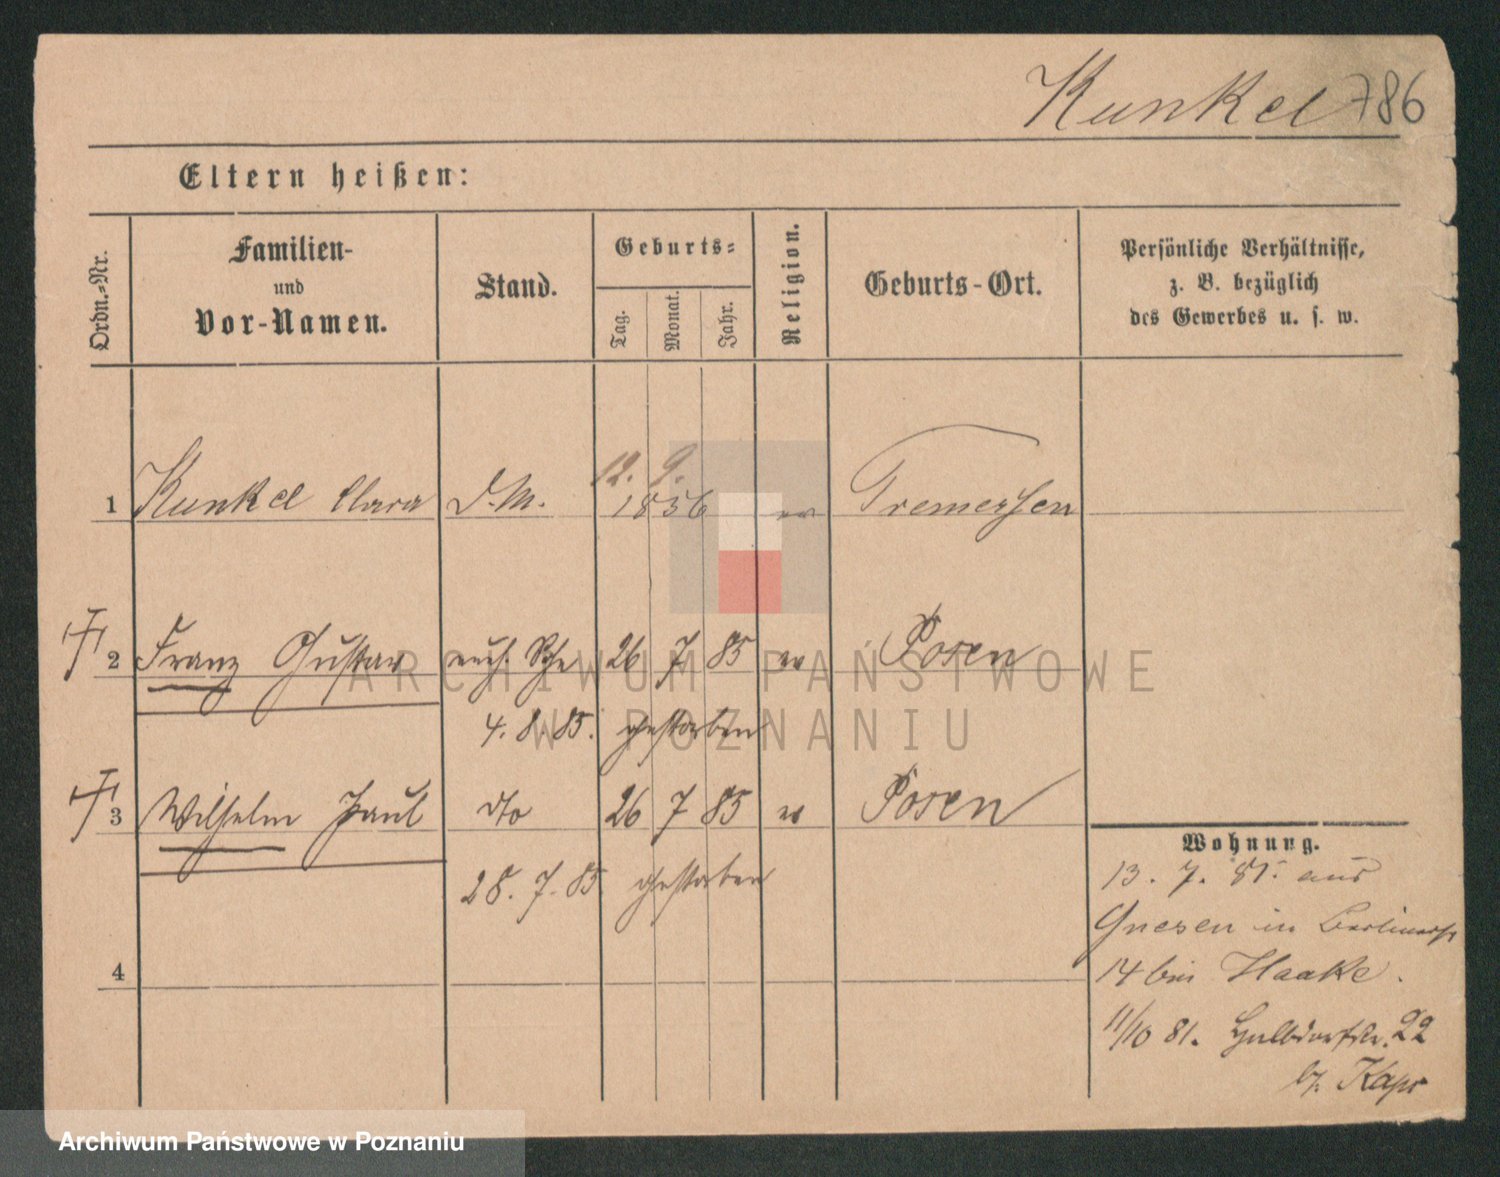 Kunkel 786
Eltern heißen:
Ordn.-Nr.
Familien-
und
Vor-Namen.
Stand.
Geburts-
Tag.
Monat.
Jahr.
Religion.
Geburts-Ort.
Persönliche Verhältnisse,
z. B. bezüglich
des Gewerbes u. s. w.
12. 9.
1 Kunkel Clara D.M. 1856 ev Tremessen
2 Franz Gustav 26 7 85 ev Posen
4. 8. 85. gestorben
3 Wilhelm Paul dto 26 7 85 ev Posen
28. 7. 85 gestorben
4
Wohnung.
13. 7. 81. aus
Gnesen in Berlinerstr
14 bei Haake.
11/10 81. Halbdorfstr. 22
b. Kaps
ARCHIWUM PAŃSTWOWE
W POZNANIU
Archiwum Państwowe w Poznaniu